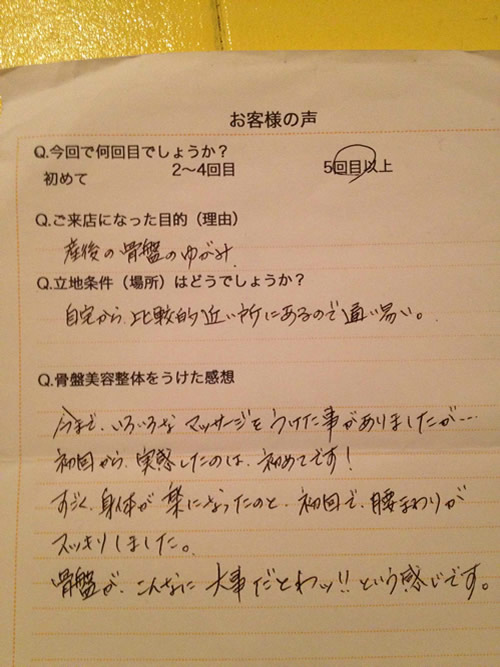 お客様の声
Q.今回で何回目でしょうか？
初めて 2〜4回目 5回目以上
Q.ご来店になった目的（理由）
産後の骨盤のゆがみ
Q.立地条件（場所）はどうでしょうか？
自宅から、比較的近い所にあるので通い易い。
Q.骨盤美容整体をうけた感想
今まで、いろいろな マッサージを うけた事がありましたが…
初回から、実感したのは、初めてです！
すごく、身体が 楽になったのと、初回で、腰まわりが
スッキリしました。
骨盤が、こんなに 大事だとわッ!! という感じです。